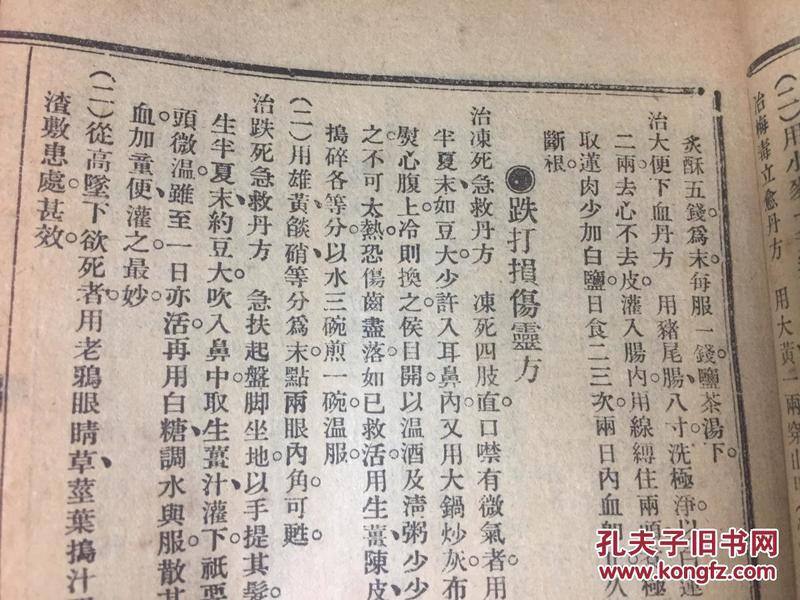 (二)用小麥
治梅毒立愈丹方 用大黃二兩
炙酥五錢。爲末。每服一錢。鹽茶湯下。
治大便下血丹方 用豬尾腸八寸。洗極淨。以白蓮
二兩。去心不去皮。灌入腸內。用線縛住兩頭。
取蓮肉。少加白鹽。日食二三次。兩日內血
斷根。
跌打損傷靈方
治凍死急救丹方 凍死四肢直。口噤有微氣者。用
半夏末如豆大少許入耳鼻內。又用大鍋炒灰布
熨心腹上。冷則換之。俟目開。以温酒及清粥少少
之。不可太熱。恐傷齒盡落。如已救活。用生薑、陳皮
搗碎各等分。以水三碗。煎一碗温服。
(二)用雄黃、燄硝等分爲末。點兩眼內角可甦。
治跌死急救丹方 急扶起盤脚坐地。以手提其髮
生半夏末約豆大。吹入鼻中。取生薑汁灌下。祇要
頭微温。雖至一日亦活。再用白糖、調水與服。散其
血。加童便灌之最妙。
(二)從高墜下欲死者。用老鴉眼睛草莖葉搗汁
渣敷患處甚效。
孔夫子旧书网
www.kongfz.com